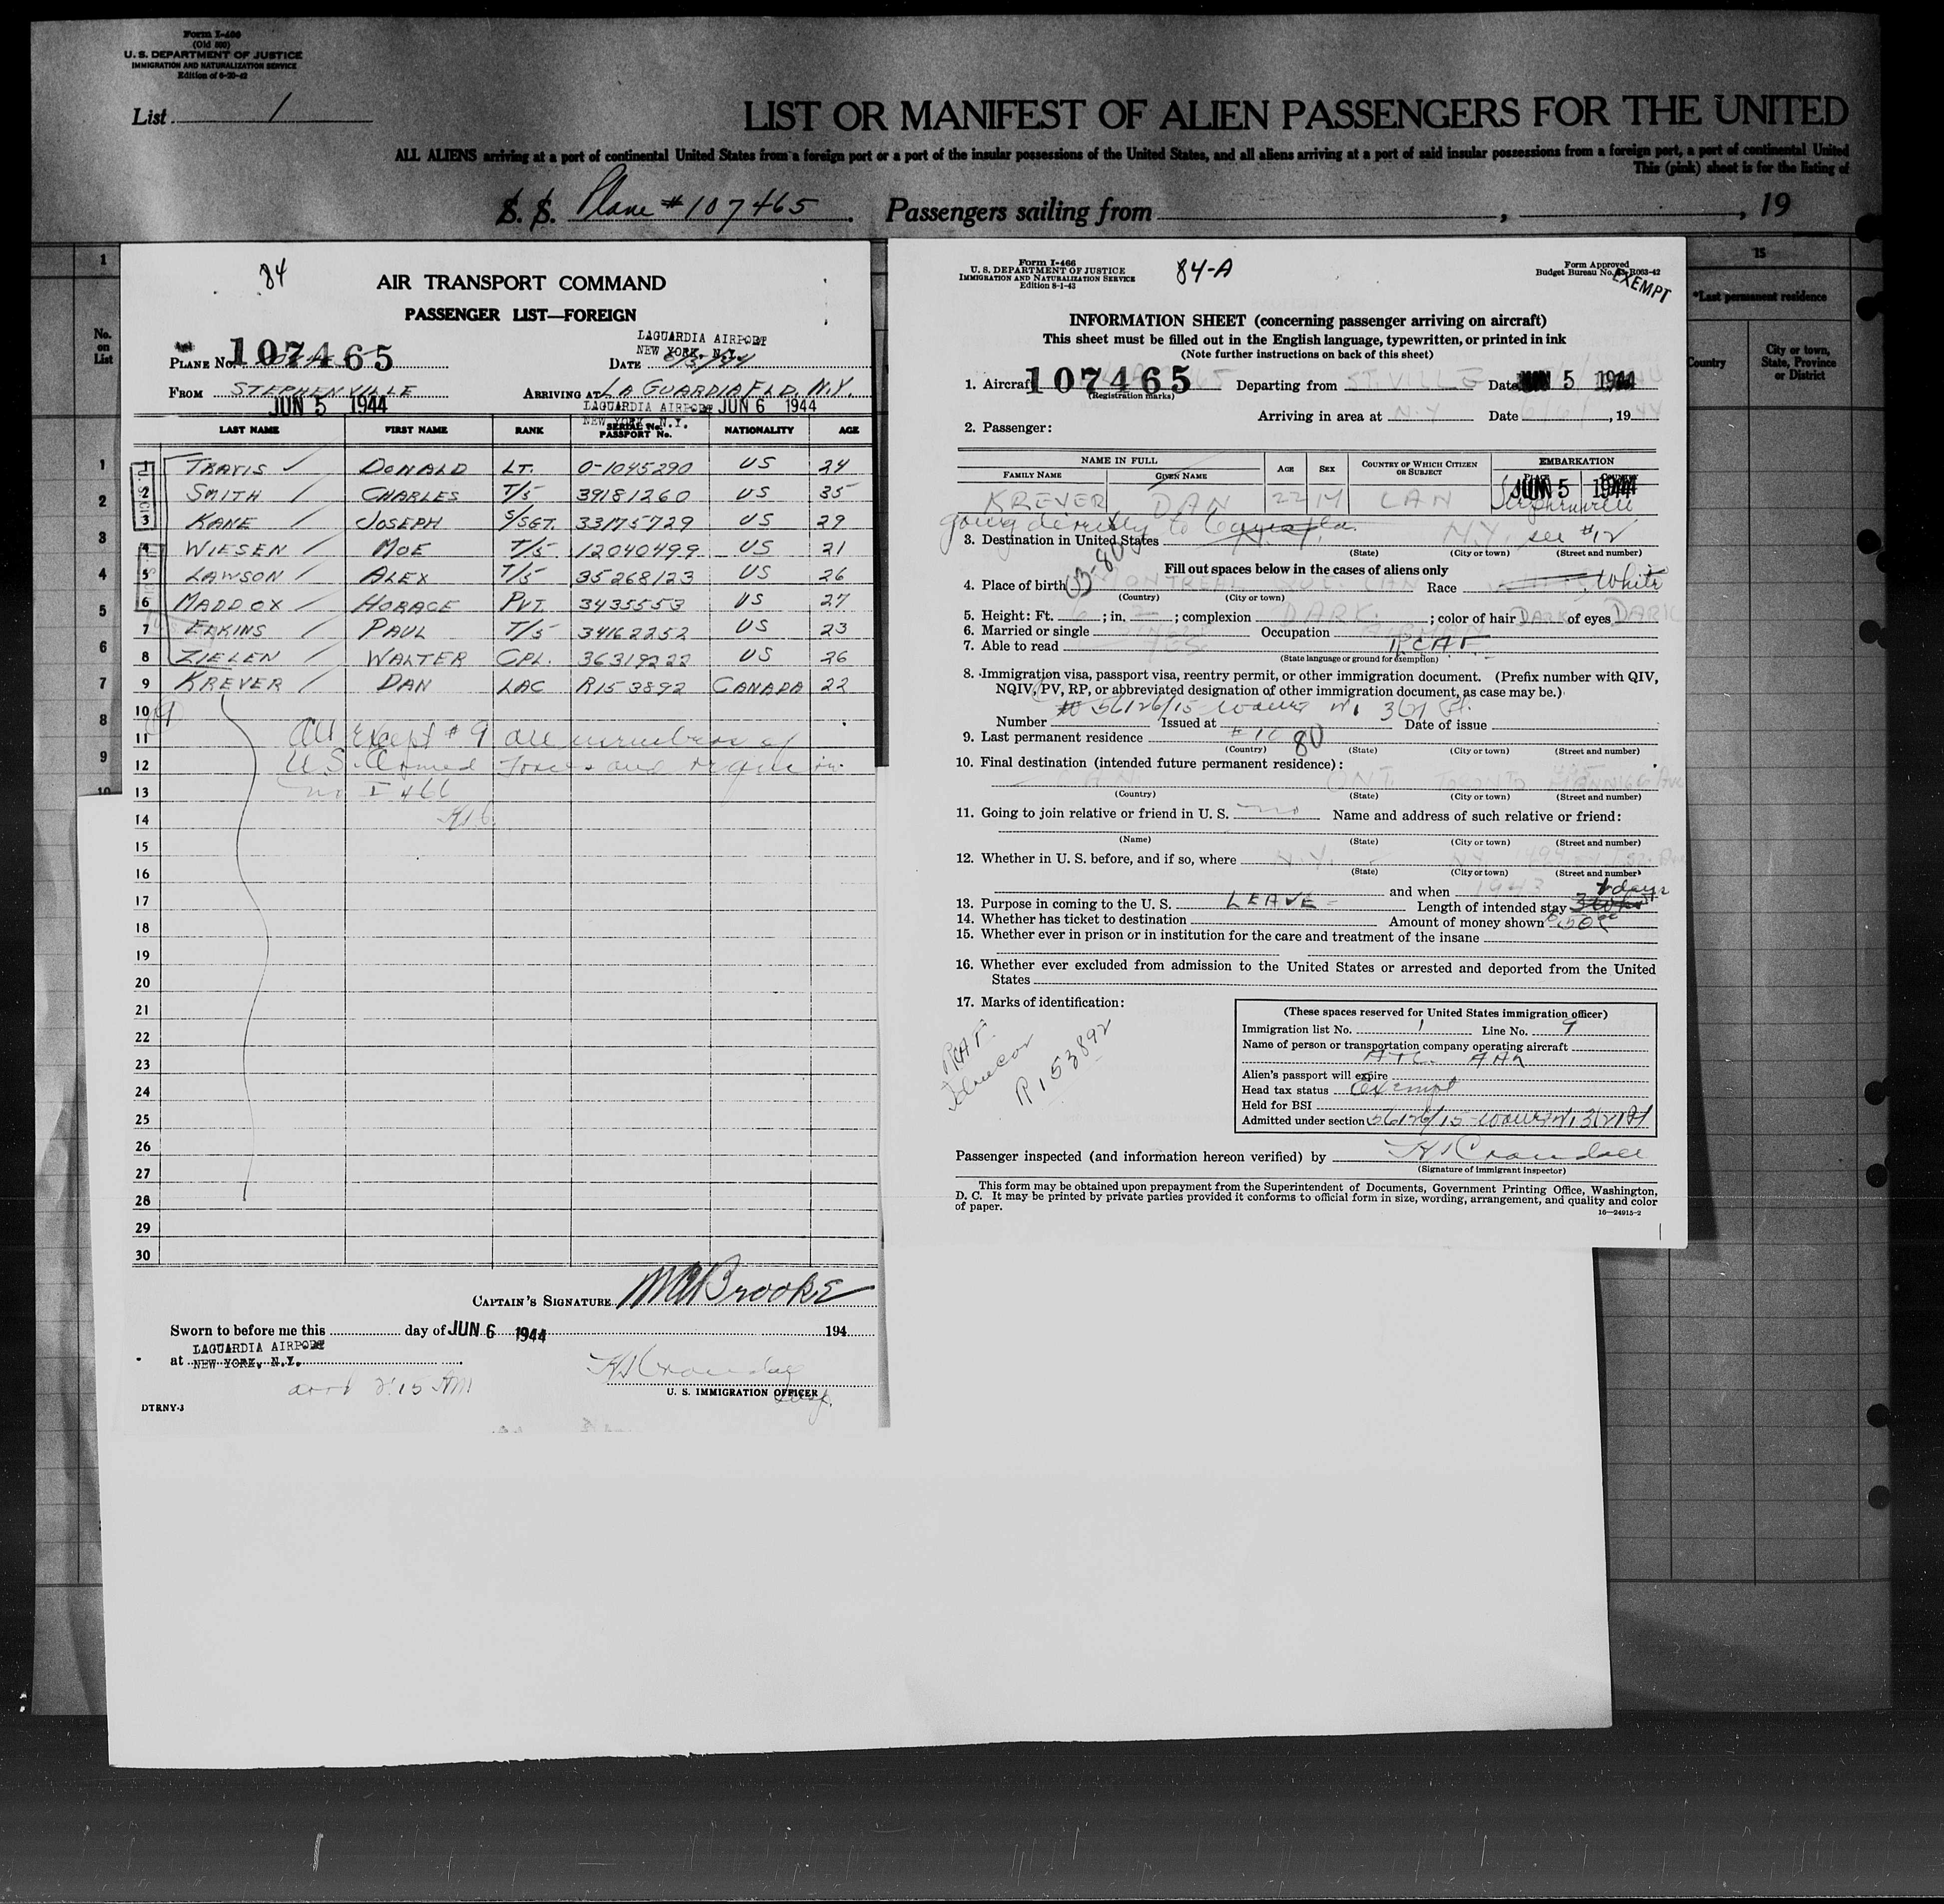 Form I-466
(Old 500)
U. S. DEPARTMENT OF JUSTICE
IMMIGRATION AND NATURALIZATION SERVICE
Edition of 6-20-42
List 1
LIST OR MANIFEST OF ALIEN PASSENGERS FOR THE UNITED
ALL ALIENS arriving at a port of continental United States from a foreign port or a port of the insular possessions of the United States, and all aliens arriving at a port of said insular possessions from a foreign port, a port of continental United
This (pink) sheet is for the listing of
S. S. Plane #107465. Passengers sailing from , , 19
1
No. on List
1
2
3
4
5
6
7
8
9
10
84
AIR TRANSPORT COMMAND
PASSENGER LIST—FOREIGN
LAGUARDIA AIRPORT
NEW YORK, N.Y.
PLANE No. 107465 DATE 6/5/44
FROM STEPHENVILLE ARRIVING AT LA GUARDIA FLD, N.Y.
JUN 5 1944 LAGUARDIA AIRPORT JUN 6 1944
NEW YORK, N.Y.
LAST NAME FIRST NAME RANK SERIAL No. PASSPORT No. NATIONALITY AGE
1 TRAVIS DONALD LT. O-1045290 US 24
2 SMITH CHARLES T/5 39181260 US 35
3 KANE JOSEPH S/SGT. 33175729 US 29
4 WIESEN MOE T/5 12040499 US 21
5 LAWSON ALEX T/5 35268123 US 26
6 MADDOX HORACE PVT. 3435553 US 27
7 ELKINS PAUL T/5 34162252 US 23
8 ZIELEN WALTER CPL. 36319222 US 26
9 KREVER DAN LAC R153892 CANADA 22
10
11 All except #9 are members of
12 U.S. Armed Forces and require
13 no I 466
14
15
16
17
18
19
20
21
22
23
24
25
26
27
28
29
30
CAPTAIN'S SIGNATURE Brooke
Sworn to before me this day of JUN 6 1944 194
at LAGUARDIA AIRPORT
NEW YORK, N.Y.
arrd 2:15 AM
Crandall
U. S. IMMIGRATION OFFICER
Insp.
DTRNY-3
Form I-466
U. S. DEPARTMENT OF JUSTICE
IMMIGRATION AND NATURALIZATION SERVICE
Edition 8-1-43
84-A
Form Approved
Budget Bureau No. 43-R063-42
EXEMPT
INFORMATION SHEET (concerning passenger arriving on aircraft)
This sheet must be filled out in the English language, typewritten, or printed in ink
(Note further instructions on back of this sheet)
1. Aircraft 107465 Departing from ST. VILLE Date JUN 5 1944
(Registration marks)
Arriving in area at N.Y Date 6/6/, 1944
2. Passenger:
NAME IN FULL AGE SEX COUNTRY OF WHICH CITIZEN OR SUBJECT EMBARKATION
FAMILY NAME GIVEN NAME
KREVER DAN 22 M CAN JUN 5 1944
Stephenville
going directly to Canada
3. Destination in United States N.Y. see #12
(State) (City or town) (Street and number)
Fill out spaces below in the cases of aliens only
4. Place of birth MONTREAL QUE CAN Race White
(Country) (City or town)
5. Height: Ft. 6; in. 2; complexion DARK; color of hair DARK of eyes DARK
6. Married or single SINGLE Occupation AIRMAN
7. Able to read YES RCAF
(State language or ground for exemption)
8. Immigration visa, passport visa, reentry permit, or other immigration document. (Prefix number with QIV,
NQIV, PV, RP, or abbreviated designation of other immigration document, as case may be.)
56126/15
Number Issued at Date of issue
9. Last permanent residence #10 80
(Country) (State) (City or town) (Street and number)
10. Final destination (intended future permanent residence):
CAN ONT. TORONTO
(Country) (State) (City or town) (Street and number)
11. Going to join relative or friend in U. S. no Name and address of such relative or friend:
(Name) (State) (City or town) (Street and number)
12. Whether in U. S. before, and if so, where N.Y. NY
(State) (City or town) (Street and number)
and when 1943 days
13. Purpose in coming to the U. S. LEAVE Length of intended stay
14. Whether has ticket to destination Amount of money shown
15. Whether ever in prison or in institution for the care and treatment of the insane
16. Whether ever excluded from admission to the United States or arrested and deported from the United
States
17. Marks of identification:
RCAF
R153892
(These spaces reserved for United States immigration officer)
Immigration list No. 1 Line No. 9
Name of person or transportation company operating aircraft
ATC
Alien's passport will expire
Head tax status Exempt
Held for BSI
Admitted under section 56126/15
Passenger inspected (and information hereon verified) by Crandall
(Signature of immigrant inspector)
This form may be obtained upon prepayment from the Superintendent of Documents, Government Printing Office, Washington,
D. C. It may be printed by private parties provided it conforms to official form in size, wording, arrangement, and quality and color
of paper.
16—24915-2
15
*Last permanent residence
Country City or town, State, Province or District